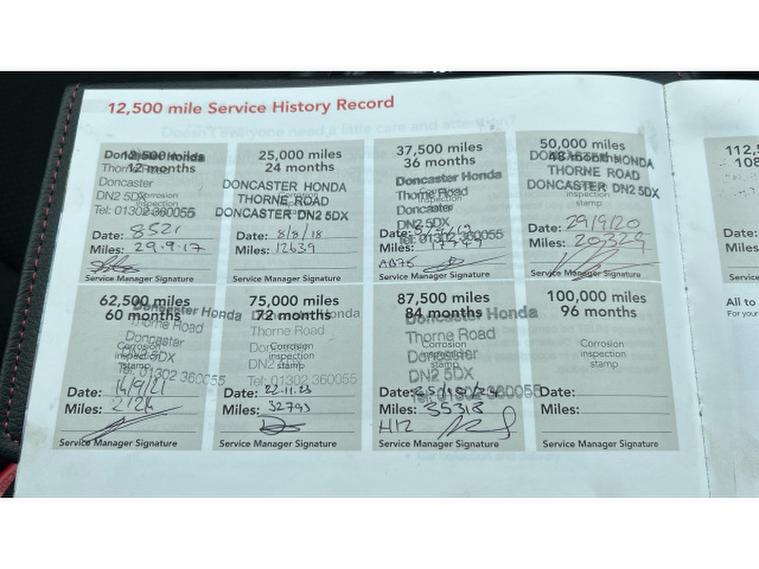 12,500 mile Service History Record
12,500 miles
12 months
Doncaster Honda
Thorne Road
Doncaster
DN2 5DX
Tel: 01302 360055
Corrosion
inspection
stamp
Date: 8521
Miles: 29.9.17
Service Manager Signature
25,000 miles
24 months
DONCASTER HONDA
THORNE ROAD
DONCASTER DN2 5DX
Date: 8/8/18
Miles: 12639
Service Manager Signature
37,500 miles
36 months
Doncaster Honda
Thorne Road
Doncaster
DN2 5DX
Tel: 01302 360055
Date:
Miles:
Service Manager Signature
50,000 miles
48 months
DONCASTER HONDA
THORNE ROAD
DONCASTER DN2 5DX
Date: 29/9/20
Miles: 20329
Service Manager Signature
62,500 miles
60 months
Doncaster Honda
Thorne Road
Doncaster
DN2 5DX
Tel: 01302 360055
Corrosion
inspection
stamp
Date: 16/9/21
Miles:
Service Manager Signature
75,000 miles
72 months
Doncaster Honda
Thorne Road
Doncaster
DN2 5DX
Tel: 01302 360055
Corrosion
inspection
stamp
Date: 22.11.23
Miles: 32793
Service Manager Signature
87,500 miles
84 months
Doncaster Honda
Thorne Road
Doncaster
DN2 5DX
Tel: 01302 360055
Corrosion
inspection
stamp
Date:
Miles: 35318
Service Manager Signature
100,000 miles
96 months
Corrosion
inspection
stamp
Date:
Miles:
Service Manager Signature
112,5
108
Date:
Miles:
Service
All to
For your